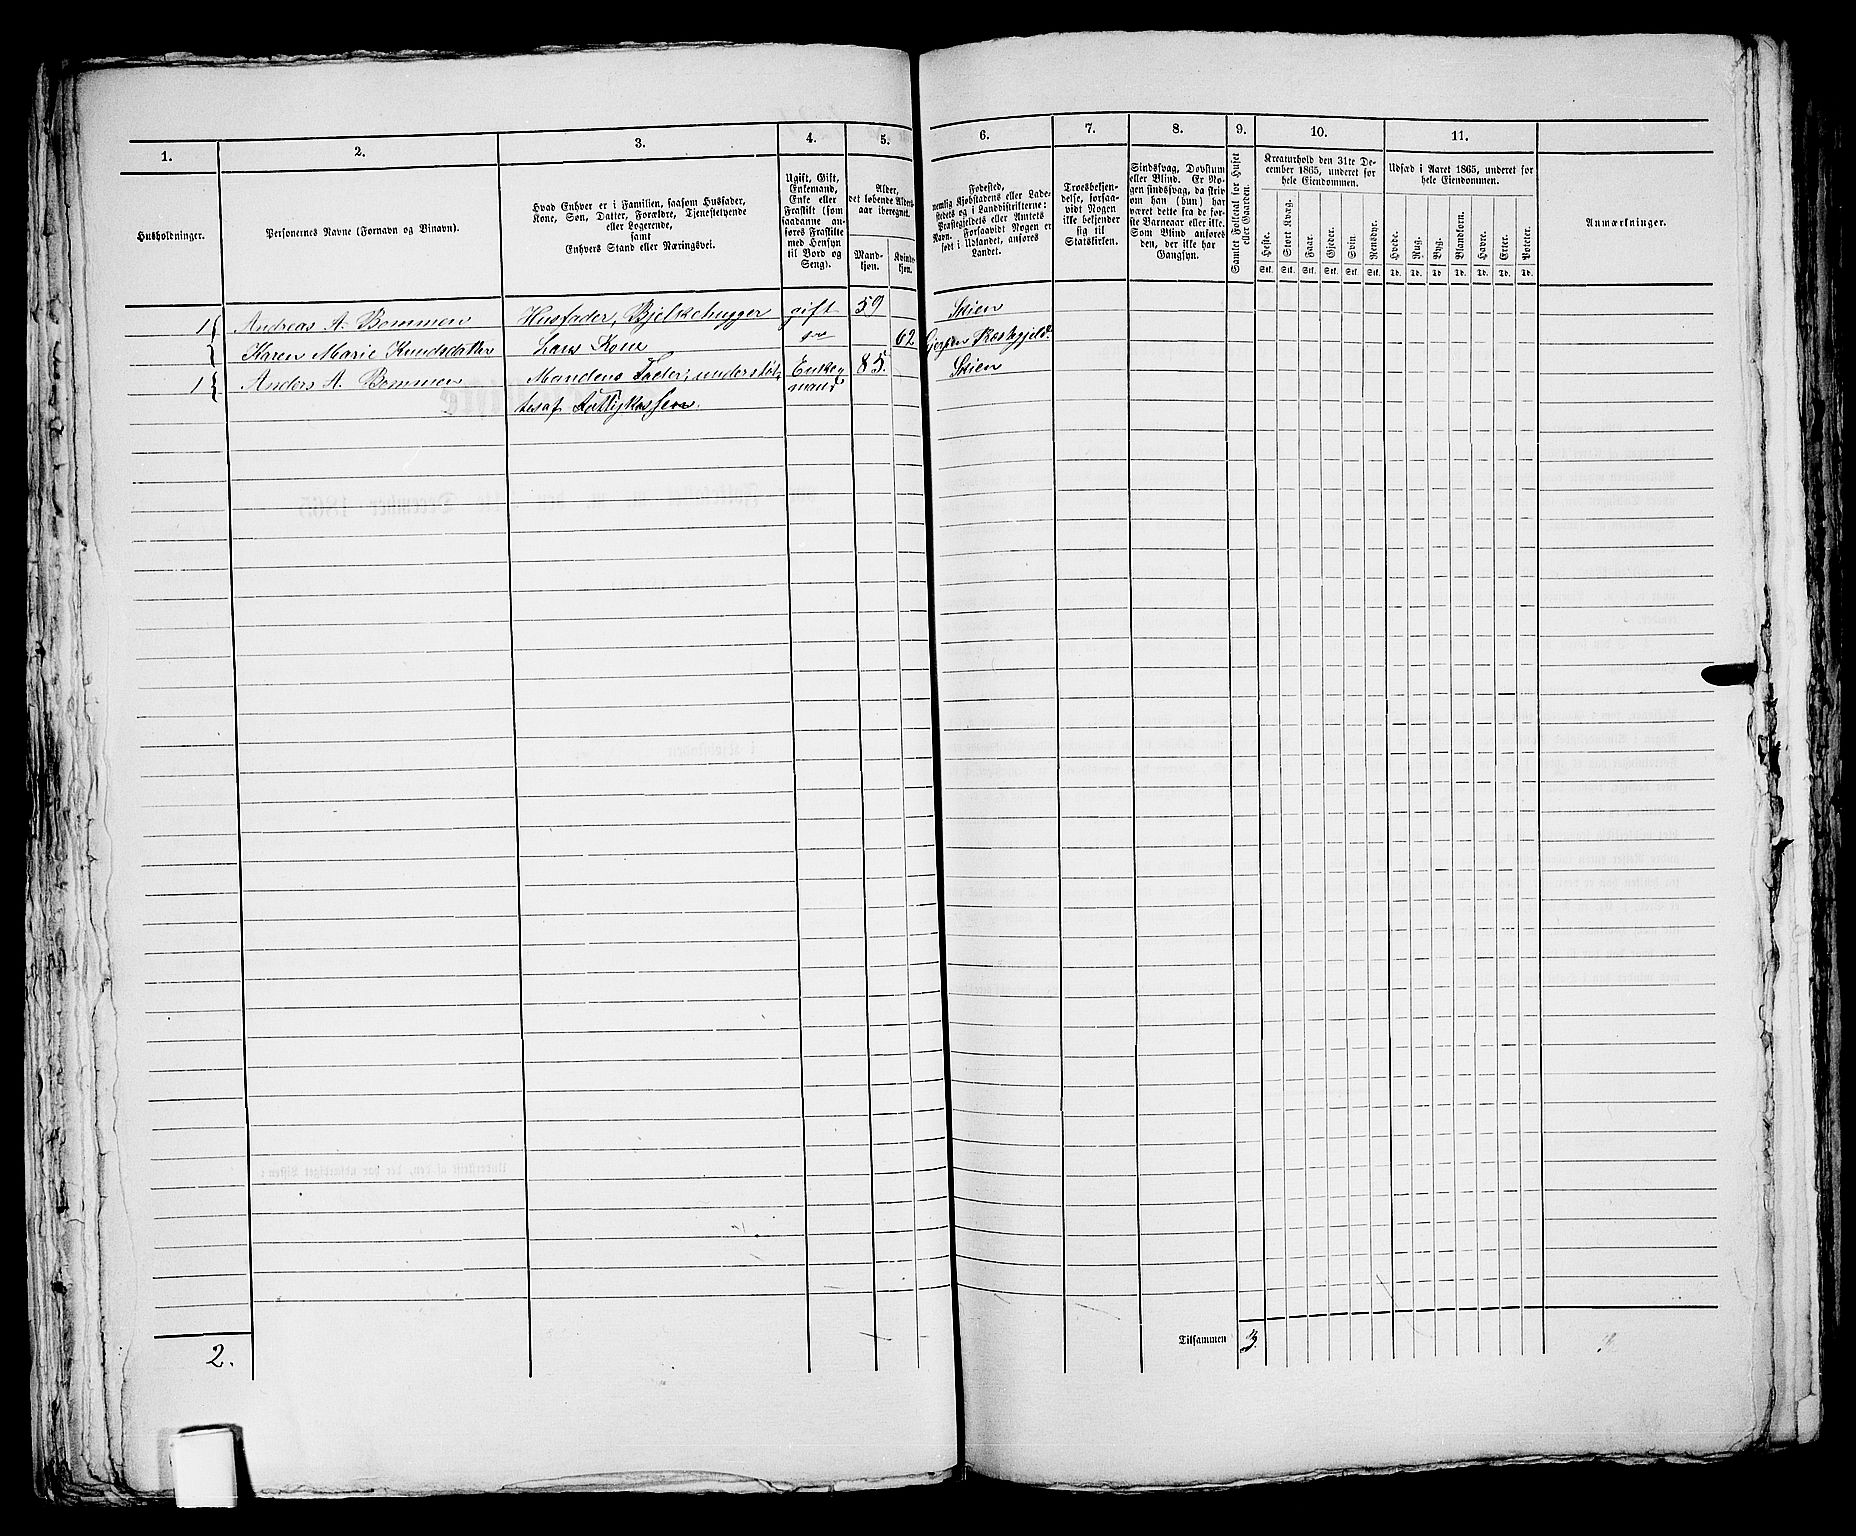 1.
2.
3.
4.
5.
6.
7.
8.
9.
10.
11.
Husholdninger.
Personernes Navne (Fornavn og Binavn).
Hvad Enhver er i Familien, saasom Husfader,
Kone, Søn, Datter, Forældre, Tjenestetyende
eller Logerende,
samt
Enhvers Stand eller Næringsvei.
Ugift, Gift,
Enkemand,
Enke eller
Fraskilt (som
saadanne an-
føres Fraskilte
med Hensyn
til Bord og
Seng).
Alder,
det løbende Alders-
aar iberegnet.
Mand-
kjøn.
Kvinde-
kjøn.
Fødested,
nemlig Kjøbstadens eller Lade-
stedets og i Landdistrikterne:
Præstegjeldets eller Amtets
Navn. Forsaavidt Nogen er
født i Udlandet, anføres
Landet.
Troesbekjen-
delse, forsaa-
vidt Nogen
ikke bekjender
sig til
Statskirken.
Sindssvag, Døvstum
eller Blind. Er No-
gen sindssvag, da skriv
om han (hun) har
været dette fra de før-
ste Barneaar eller ikke.
Som Blind anføres
den, der ikke har
Gangsyn.
Samlet Folketal for Huset
eller Gaarden.
Kreaturhold den 31te De-
cember 1865, underet for
hele Eiendommen.
Heste. Stort Kvæg. Faar. Gjeder. Svin Rensdyr.
Stk. Stk. Stk. Stk. Stk. Stk.
Udsæd i Aaret 1865, underet for
hele Eiendommen.
Hvede. Rug. Byg. Blandkorn. Havre. Erter. Poteter.
Td. Td. Td. Td. Td. Td. Td.
Anmærkninger.
1 Andreas A. Bommen Husfader, Bjelkehugger gift 59 Skien
Karen Marie Knudsdatter hans Kone gr 62 Gjerpen Præstegjeld.
1 Anders A. Bommen Mandens Fader, understøt- Enke- 85. Skien
tes af Fattigkassen. mand
2.
Tilsammen 3.